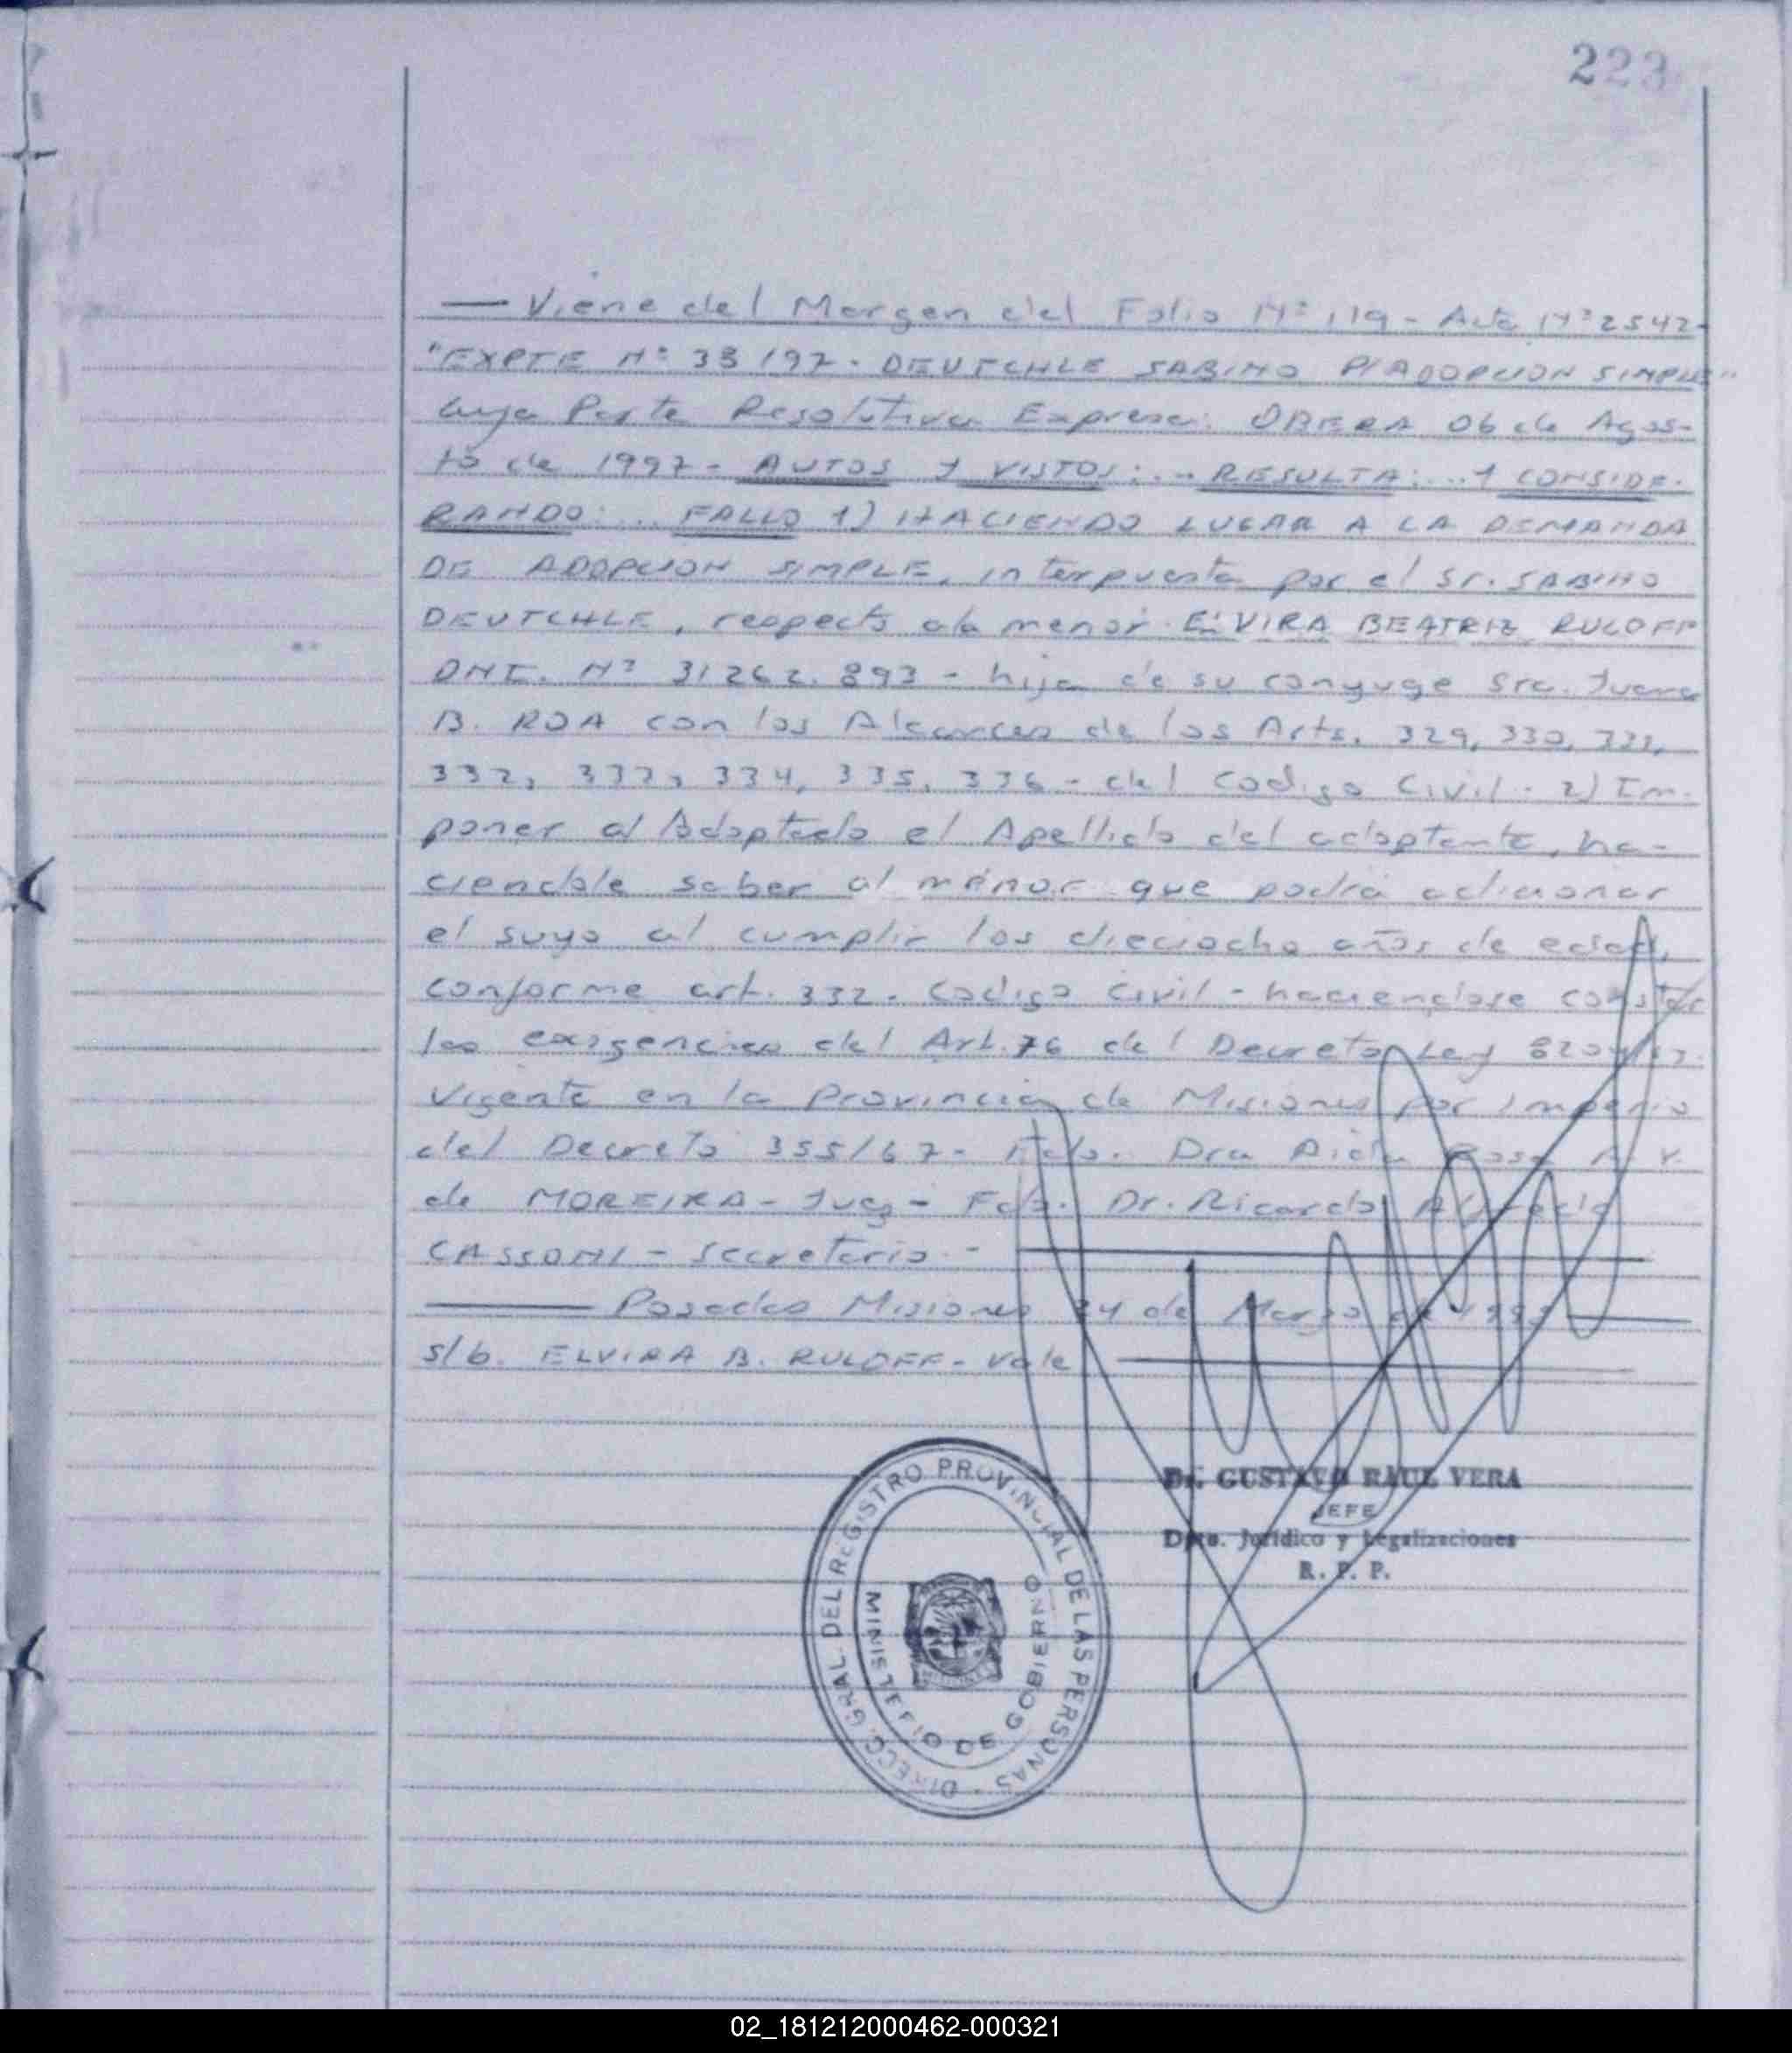 223
— Viene del Margen del Folio Nº 119 - Acta Nº 2542-
"EXPTE Nº 33/97 - DEUTCHLE SABINO P/ADOPCION SIMPLE"
cuya Parte Resolutiva Expresa: OBERA 06 de Agos-
to de 1997- AUTOS Y VISTOS: .. RESULTA: ... Y CONSIDE-
RANDO: .. FALLO 1) HACIENDO LUGAR A LA DEMANDA
DE ADOPCION SIMPLE, interpuesta por el Sr. SABINO
DEUTCHLE, respecto a la menor ELVIRA BEATRIZ RULOFF
DNI. Nº 31262.893 - hija de su conyuge Sra. Juana
B. ROA con los Alcances de los Arts. 329, 330, 331,
332, 333, 334, 335, 336 - del Codigo Civil - 2) Im-
poner al Adoptado el Apellido del adoptante, ha-
ciendole saber al menor que podrá adicionar
el suyo al cumplir los dieciocho años de edad,
conforme art. 332. Codigo Civil - haciendose constar
las exigencias del Art. 76 del Decreto Ley
Vigente en la Provincia de Misiones por Imperio
del Decreto 355/67- Fdo. Dra Aida Rosa
de MOREIRA - Juez - Fdo. Dr. Ricardo Alfredo
CASSONI - Secretario. -
— Posadas Misiones 24 de Marzo de
s/b. ELVIRA B. RULOFF - Vale
Dr. GUSTAVO RAUL VERA
JEFE
Dpto. Jurídico y Legalizaciones
R. P. P.
DIRECC. GRAL. DEL REGISTRO PROVINCIAL DE LAS PERSONAS -
MINISTERIO DE GOBIERNO
02_181212000462-000321